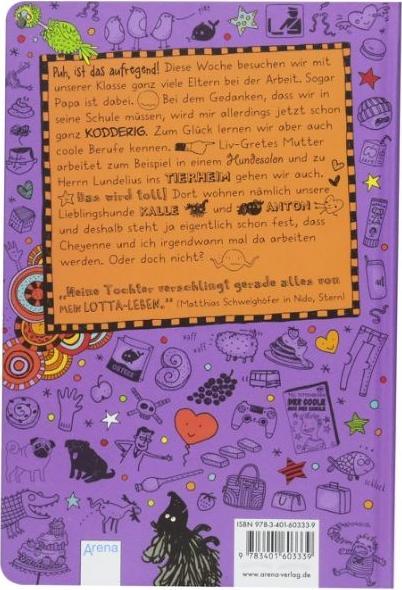 Puh, ist das aufregend! Diese Woche besuchen wir mit
unserer Klasse ganz viele Eltern bei der Arbeit. Sogar
Papa ist dabei. Bei dem Gedanken, dass wir in
seine Schule müssen, wird mir allerdings jetzt schon
ganz KODDERIG. Zum Glück lernen wir aber auch
coole Berufe kennen. Liv-Gretes Mutter
arbeitet zum Beispiel in einem Hundesalon und zu
Herrn Lundelius ins TIERHEIM gehen wir auch.
Das wird toll! Dort wohnen nämlich unsere
Lieblingshunde KALLE und ANTON
und deshalb steht ja eigentlich schon fest, dass
Cheyenne und ich irgendwann mal da arbeiten
werden. Oder doch nicht?
„Meine Tochter verschlingt gerade alles von
MEIN LOTTA-LEBEN." (Matthias Schweighöfer in Nido, Stern)
DER COOLE
AUS DER SCHULE
schleck
Arena
ISBN 978-3-401-60333-9
9 783401 603339
www.arena-verlag.de